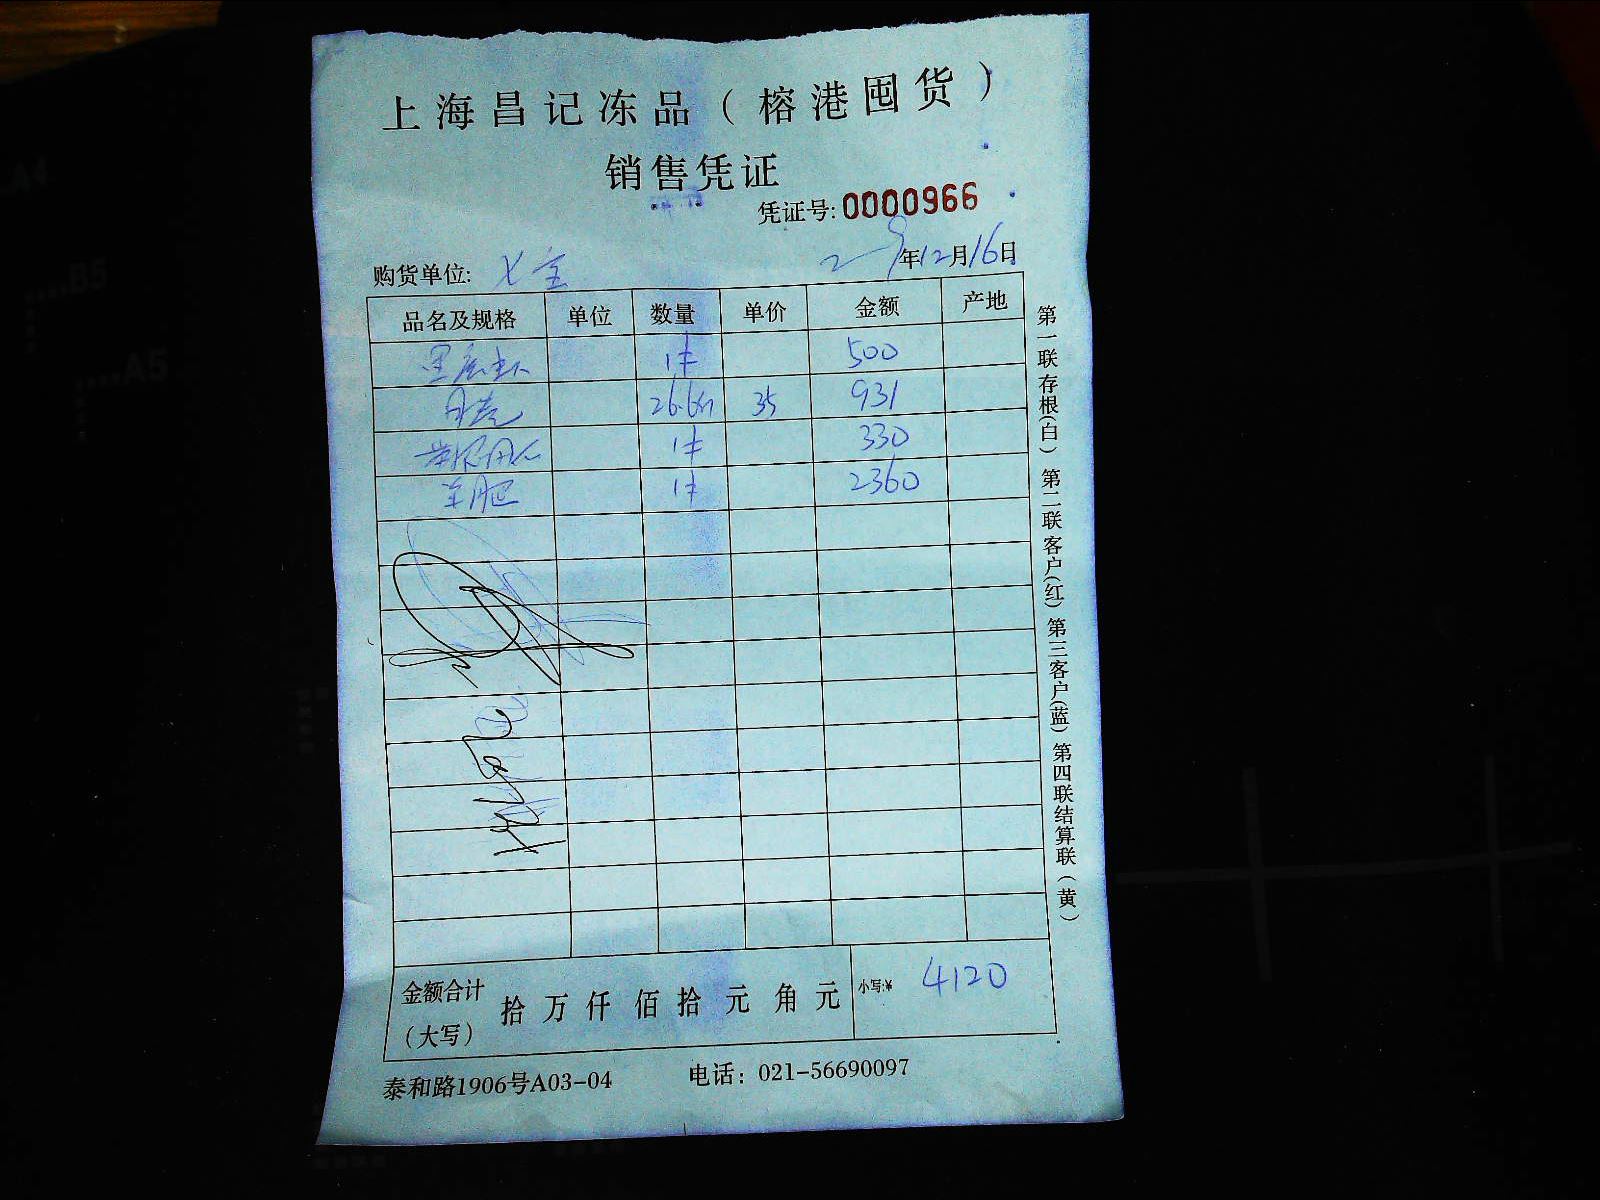 上海昌记冻品（榕港囤货）
销售凭证
凭证号: 0000966
购货单位:
年12月16日
品名及规格 单位 数量 单价 金额 产地
1件 500
26.6斤 35 931
1件 330
羊肥 1件 2360
金额合计（大写） 拾 万 仟 佰 拾 元 角 元 小写:¥ 4120
泰和路1906号A03-04 电话：021-56690097
第一联存根(白) 第二联客户(红) 第三客户(蓝) 第四联结算联（黄）
A4
B5
A5